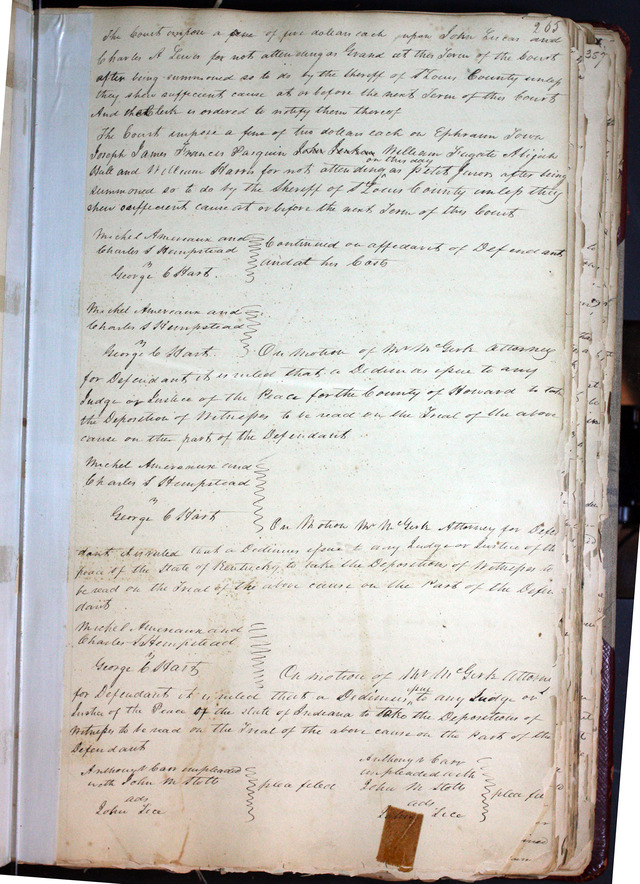 265
The Court impose a fine of five dollars each upon John Lucas and
Charles A Lewis for not attending as Grand at this Term of the Court
after being summoned so to do by the Sheriff of St Louis County unless
they shew sufficient cause at or before the next Term of this Court
And the Clerk is ordered to notify them thereof
The Court impose a fine of two dollars each on Ephraim Town
Joseph James Francis Pasquin John William Fugate Abijah
on this day
Hull and William Harris for not attending as petit Jurors after being
summoned so to do by the Sheriff of St Louis County unless they
shew sufficient cause at or before the next Term of this Court
Michel Amereaux and
Charles S Hempstead
vs
George C Hart.
Continued on affidavit of Defendant
and at his Costs
Michel Amereaux and
Charles S Hempstead
vs
George C Hart. On Motion of Mr McGirk Attorney
for Defendant it is ruled that a Dedimus issue to any
Judge or Justice of the Peace for the County of Howard to take
the Deposition of Witnesses to be read on the Trial of the above
cause on the part of the Defendant
Michel Amereaux and
Charles S Hempstead
vs
George C Hart On Motion Mr McGirk Attorney for Defen
dant it is ruled that a Dedimus issue to any Judge or Justice of the
peace of the State of Kentucky to take the Deposition of Witnesses to
be read on the Trial of the above cause on the Part of the Defen
dant
Michel Amereaux and
Charles S Hempstead
vs
George C Hart On motion of Mr McGirk Attorne
for Defendant it is ruled that a Dedimus issue to any Judge or
Justice of the Peace of the State of Indiana to take the Depositions of
Witnesses to be read on the Trial of the above cause on the Part of the
Defendant
Anthony V Carr impleaded
with John M Stotts
ads
John Tice
plea filed
Anthony V Carr
impleaded with
John M Stotts
ads
Tice
plea file
357